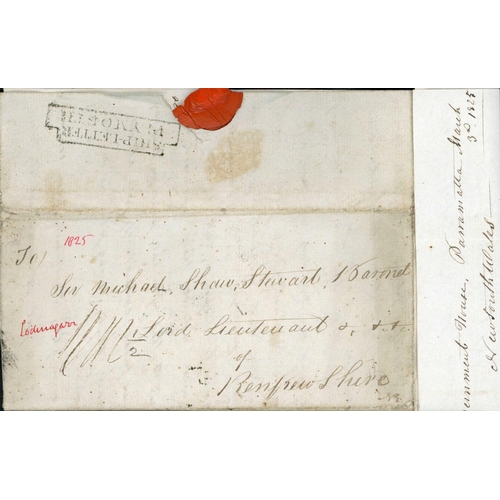 SHIP-LETTER
PLYMOUTH
To/
1825
Sir Michael, Shaw, Stewart, Baronet
Lord Lieutenant &. &. &.
1/2
of
Renfrew Shire
Government House, Parramatta March
3d 1825
New South Wales